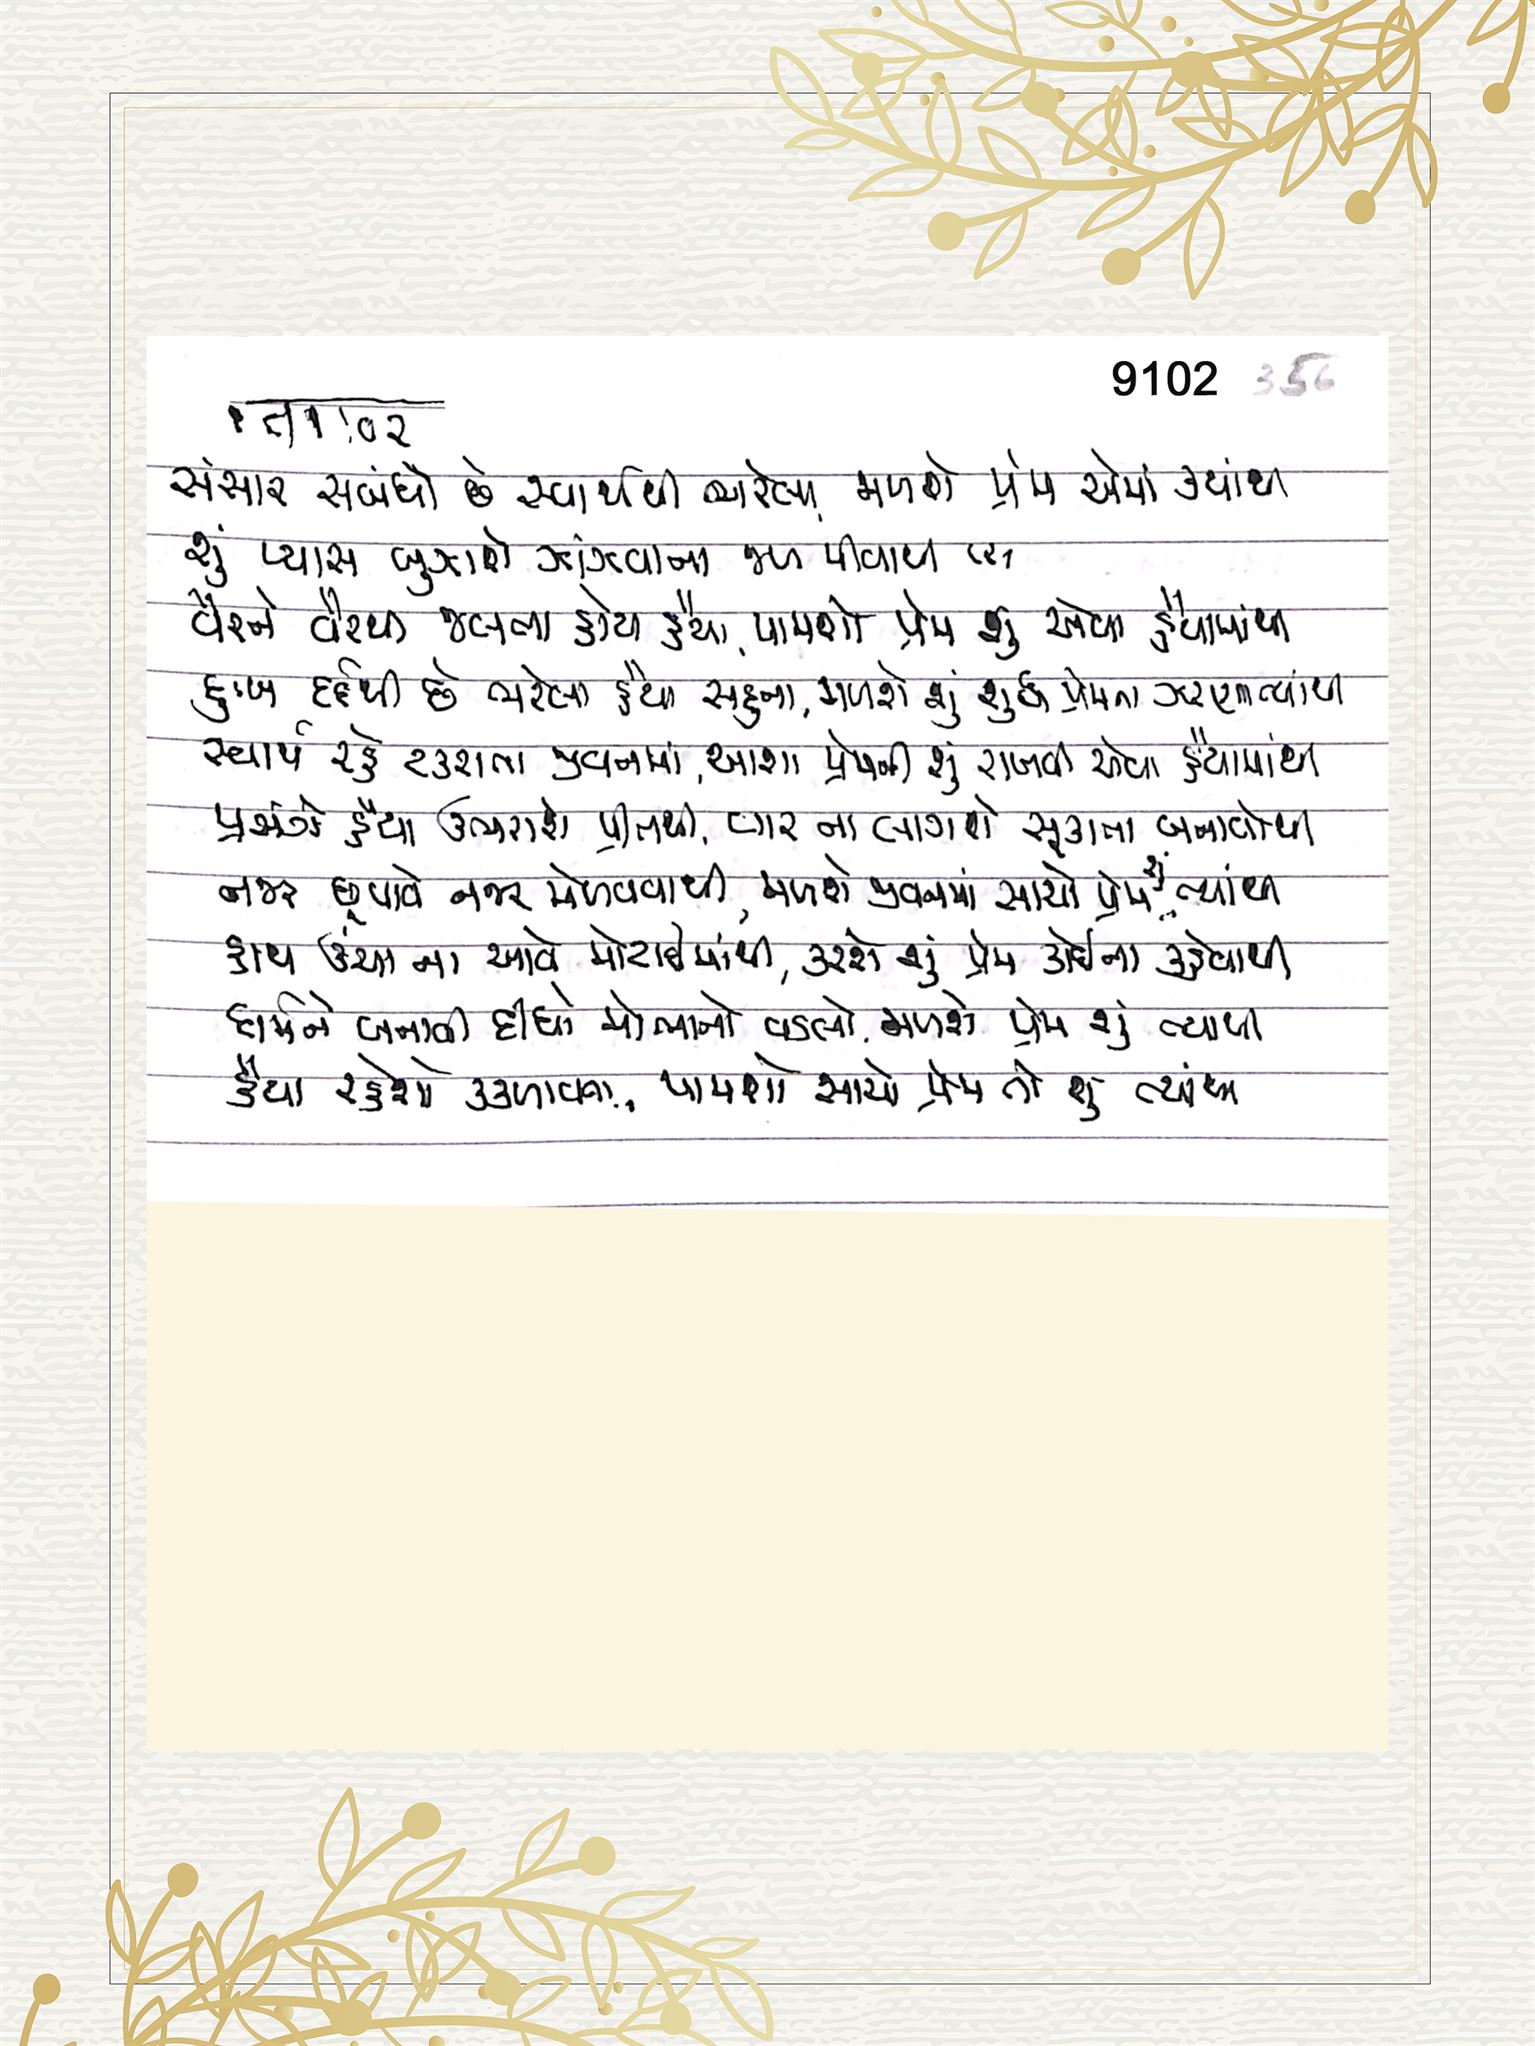 9102 356
સંસાર સબંધો છે સ્વાર્થથી ભરેલા, મળશે પ્રેમ એમાં ક્યાંથી
શું પ્યાસ બુઝાશે ઝાંઝવાના જળ પીવાથી
વૈરને વૈરથી જલતા હોય હૈયા, પામશો પ્રેમ શું એવા હૈયામાંથી
દુઃખ દર્દથી છે ભરેલા હૈયા સહુના, મળશે શું શુદ્ધ પ્રેમના ઝરણા ત્યાંથી
સ્વાર્થ રહે ટકરાતા જીવનમાં, આશા પ્રેમની શું રાખવી એવા હૈયામાંથી
હૈયા ઉભરાશે પ્રીતથી, વાર ના લાગશે સૂકાતા બનાવોથી
નજર છૂપાવે નજર મેળવવાથી, મળશે જીવનમાં સાચો પ્રેમ શું ત્યાંથી
હાથ ઉંચા ના આવે મોટાઈમાંથી, કરશે શું પ્રેમ કોઈના કહેવાથી
ધર્મને બનાવી દીધો મોભાનો વડલો, મળશે પ્રેમ શું ત્યાંથી
હૈયા રહેશો કકળાવતા, પામશો સાચો પ્રેમ તો શું ત્યાંથી